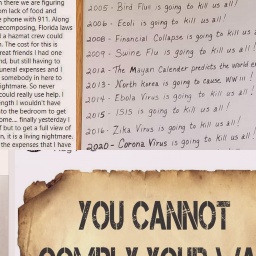 n there we are figuring
om lack of food and
e phone with 911. Along
ecomposing, Florida laws
d a hazmat crew could
. The cost for this is
reat friends I had one
nd, but still having to
uneral expenses and I
somebody in here to
nightmare. So never
could really use help. I
ength I wouldn't have
nto the bedroom to get
ome... finally yesterday i
f but to get a full view of
n, it is a living nightmare.
the expenses that I have
2005 - Bird Flu is going to kill us all!
2006 - Ecoli is going to kill us all!
2008 - Financial Collapse is going to kill us a
2009 - Swine Flu is going to kill us all!
2012 - The Mayan Calender predicts the world en
2013 - North Korea is going to cause WW III!
2014 - Ebola Virus is going to kill us all!
2015 - ISIS is going to kill us all!
2016 - Zika Virus is going to kill us all!
2020 - Corona Virus is going to kill us all!
YOU CANNOT
COMPLY YOUR WA